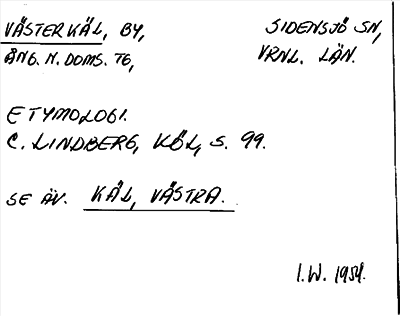 VÄSTERKÄL, BY, SIDENSJÖ SN,
ÅNG. N. DOMS. TG, VRNL. LÄN.
ETYMOLOGI.
C. LINDBERG, KÖL, S. 99.
SE ÄV. KÄL, VÄSTRA.
I.W. 1954.